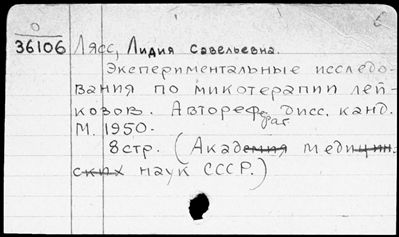 0
36106 Лясс, Лидия Савельевна.
Экспериментальные исследо-
вания по микотерапии лей-
козов. Автореферат дисс. канд.
М. 1950.
8 стр. (Академия медицин.
ских наук СССР.)